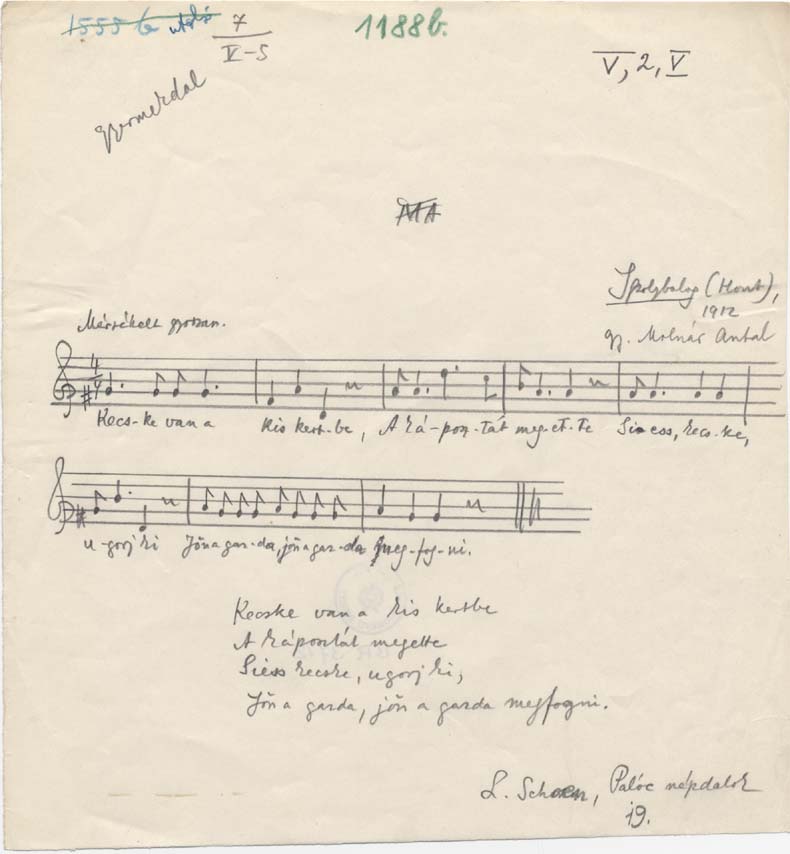 1555 b utolsó 7 1188b.
V-5
V, 2, V
gyermekdal
MA
Ipolybalog (Hont),
1912
Mérsékelt gyorsan. gy. Molnár Antal
4
4
Kecs-ke van a kis kert-be, A ká-posz-tát meg-et-te Siess, kecs-ke,
u-gorj ki Jön a gaz-da, jön a gaz-da meg-fog-ni.
Kecske van a kis kertbe
A káposztát megette
Siess kecske, ugorj ki,
Jön a gazda, jön a gazda megfogni.
L. Schoen, Palóc népdalok
19.